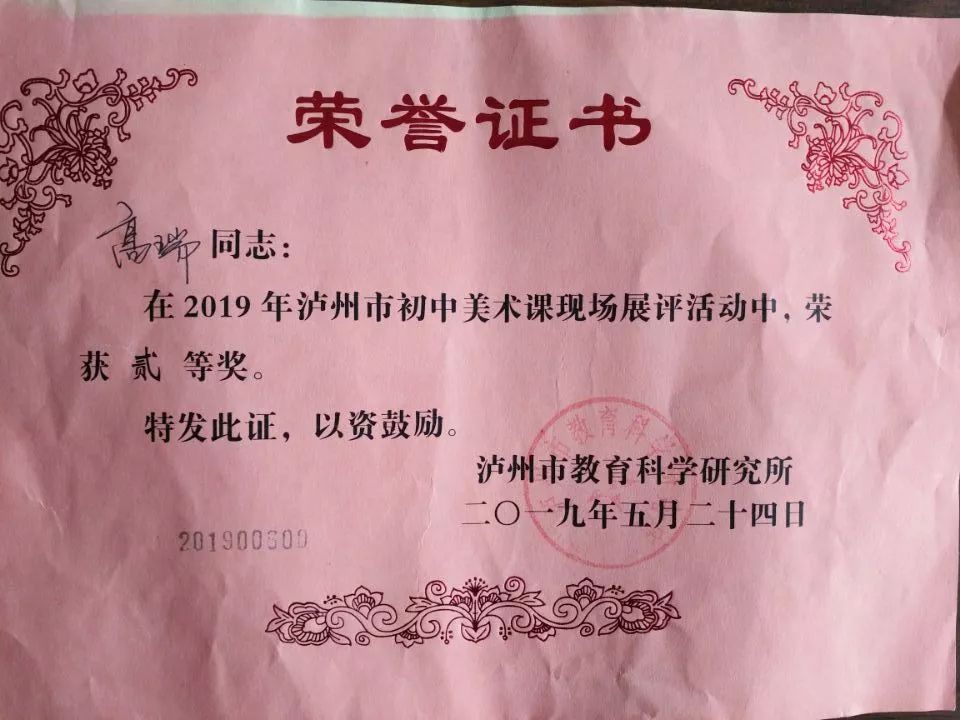 荣誉证书
高瑞同志：
在2019年泸州市初中美术课现场展评活动中，荣
获 贰 等奖。
特发此证，以资鼓励。
泸州市教育科学研究所
二〇一九年五月二十四日